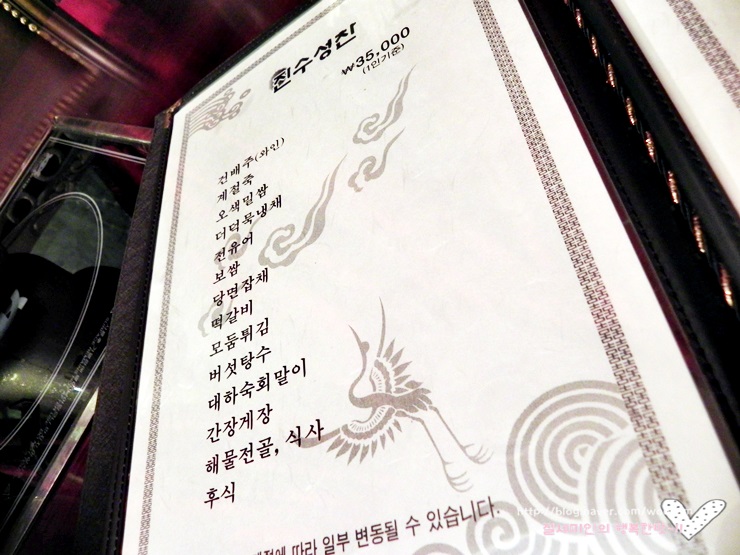 진수성찬
₩35,000
(1인기준)
건배주(와인)
계절죽
오색밀쌈
더덕묵냉채
전유어
보쌈
당면잡채
떡갈비
모둠튀김
버섯탕수
대하숙회말이
간장게장
해물전골, 식사
후식
따라 일부 변동될 수 있습니다.